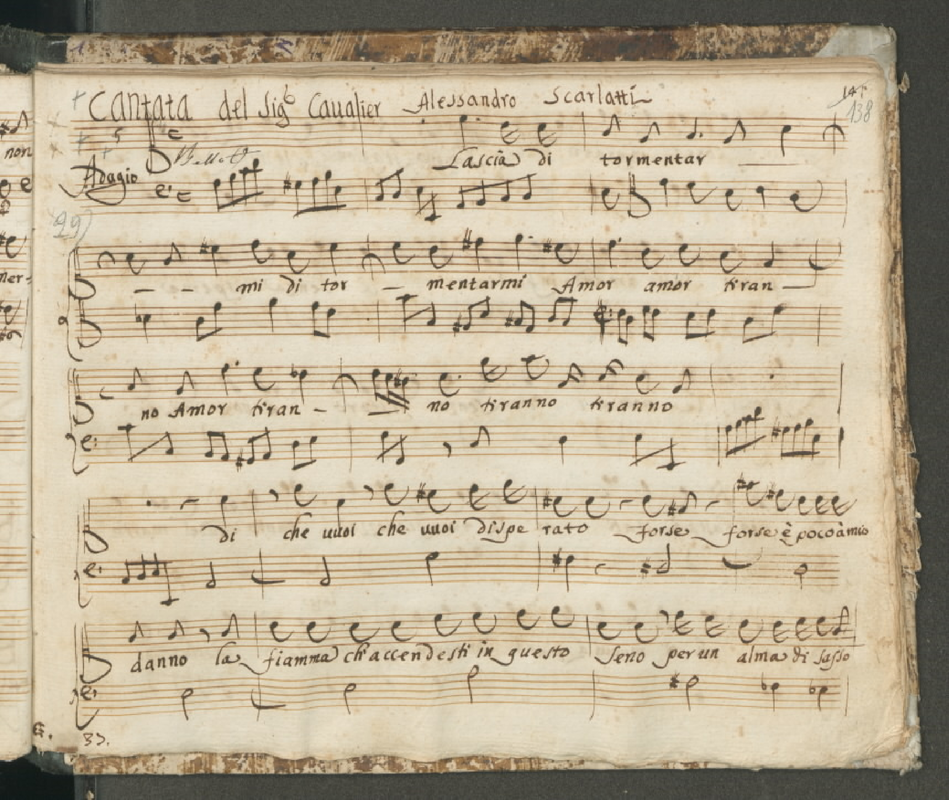 Cantata del Sig.e Caualier Alessandro Scarlatti
138
Lascia di tormentar
Adagio
29
mi di tor - mentarmi Amor amor tiran
no Amor tiran - no tiranno tiranno
di che uuoi che uuoi dispe rato forse forse è poco à mio
danno la fiamma ch'accendesti in questo seno per un alma di sasso
33.